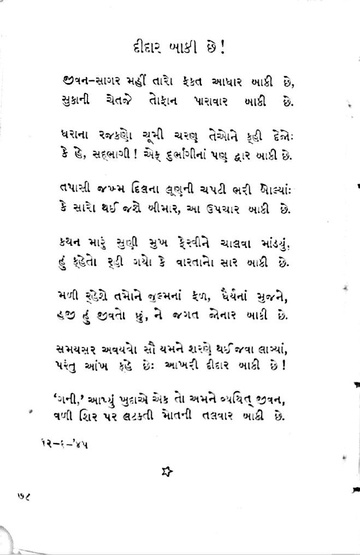 દીદાર બાકી છે!
જીવન-સાગર મહીં તારો ફકત આધાર બાકી છે,
સુકાની ચેતજે તોફાન પારાવાર બાકી છે.
ધરાના રજકણો ચૂમી ચરણ તેઓને કહી દેજો:
કે હે, સદ્દભાગી! એક દુર્ભાગીનાં પણ દ્વાર બાકી છે.
તપાસી જખ્મ દિલના લૂણની ચપટી ભરી બોલ્યાં:
કે સારો થઈ જશે બીમાર, આ ઉપચાર બાકી છે.
કથન મારું સુણી મુખ ફેરવીને ચાલવા માંડયું,
હું કહેતો રહી ગયો કે વારતાનો સાર બાકી છે.
મળી રહેશે તમોને જુલ્મનાં ફળ, ધૈર્યનાં મુજને,
હજી હું જીવતો છું, ને જગત જોનાર બાકી છે.
સમયસર અવયવો સૌ યમને શરણે થઈ જવા લાગ્યાં,
પરંતુ આંખ કહે છેઃ આખરી દીદાર બાકી છે!
‘ગની,’ આપ્યું ખુદાએ એક તો અમને વ્યથિત્ જીવન,
વળી શિર પર લટકતી મોતની તલવાર બાકી છે.
૧૨-૬-’૪૫
૭૮